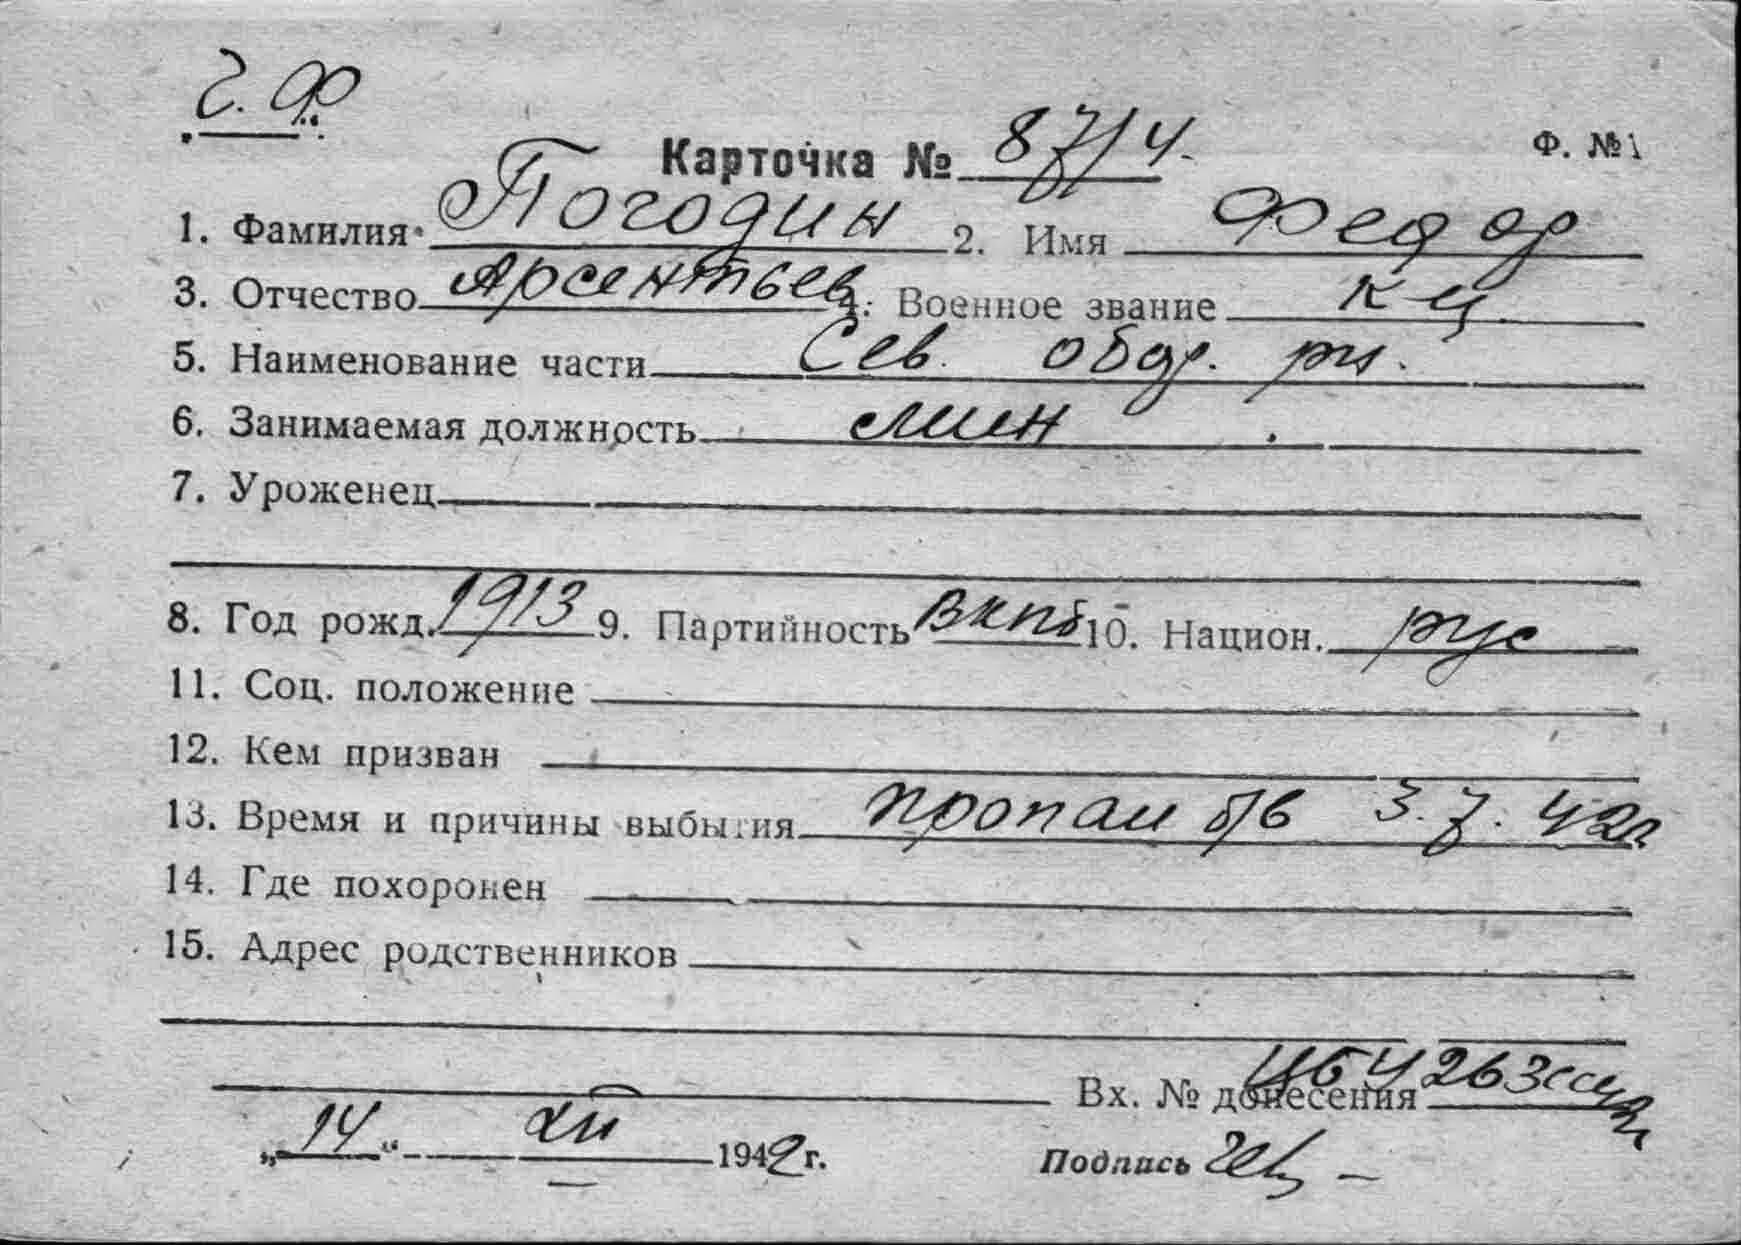 Ч. Ф.
Карточка № 87/4. Ф. № 1
1. Фамилия Погодин 2. Имя Федор
3. Отчество Арсентьев 4. Военное звание к-ц
5. Наименование части Сев. обор. рн.
6. Занимаемая должность
7. Уроженец
8. Год рожд. 1913 9. Партийность ВКПб 10. Национ. рус
11. Соц. положение
12. Кем призван
13. Время и причины выбытия пропал б/в 3.7.42г
14. Где похоронен
15. Адрес родственников
Вх. № донесения 4263
„14“ XII 1942 г. Подпись